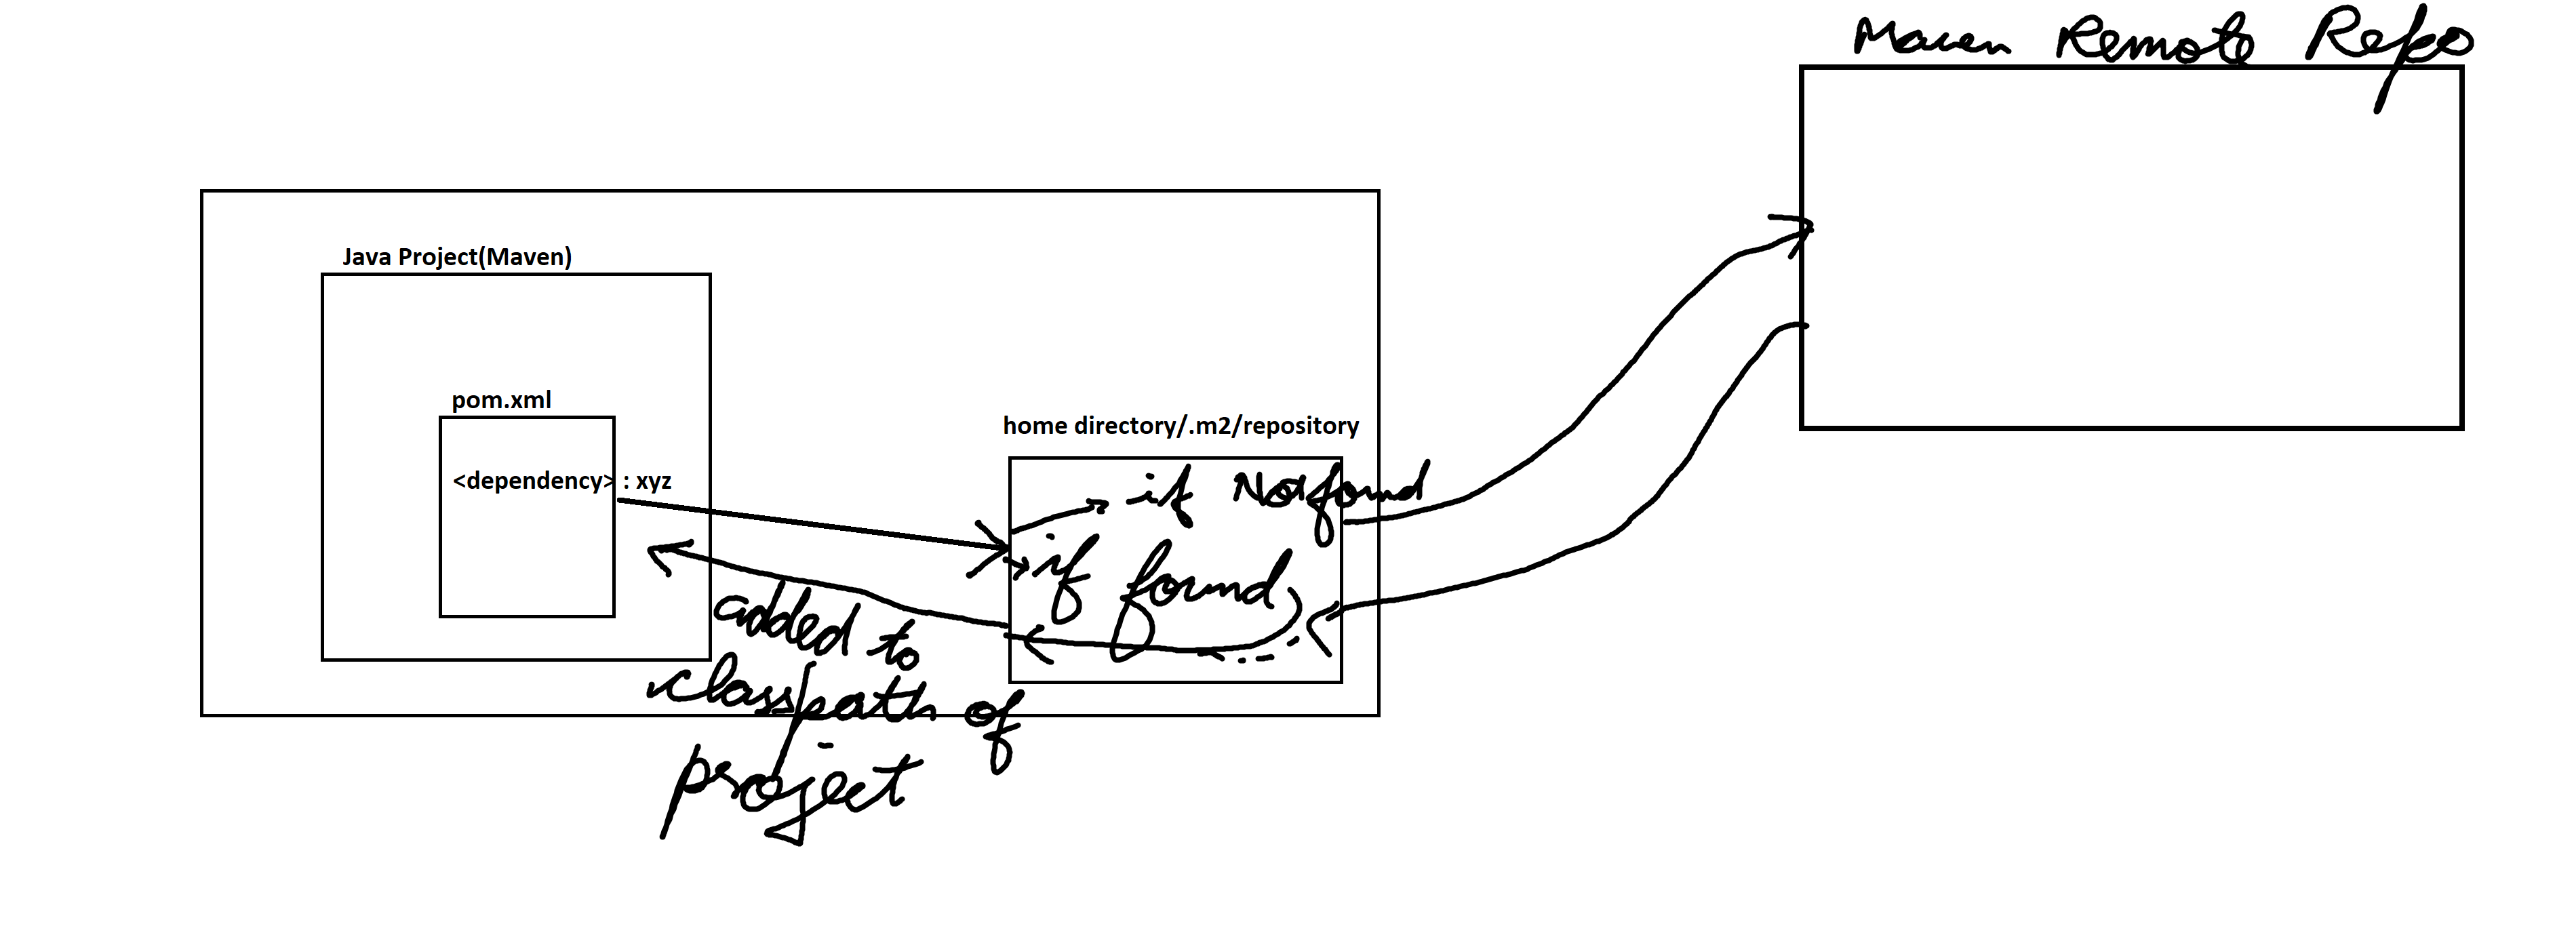 Maven Remote Repo
Java Project(Maven)
pom.xml
<dependency> : xyz
home directory/.m2/repository
if Not found
if found
added to
classpath of
project